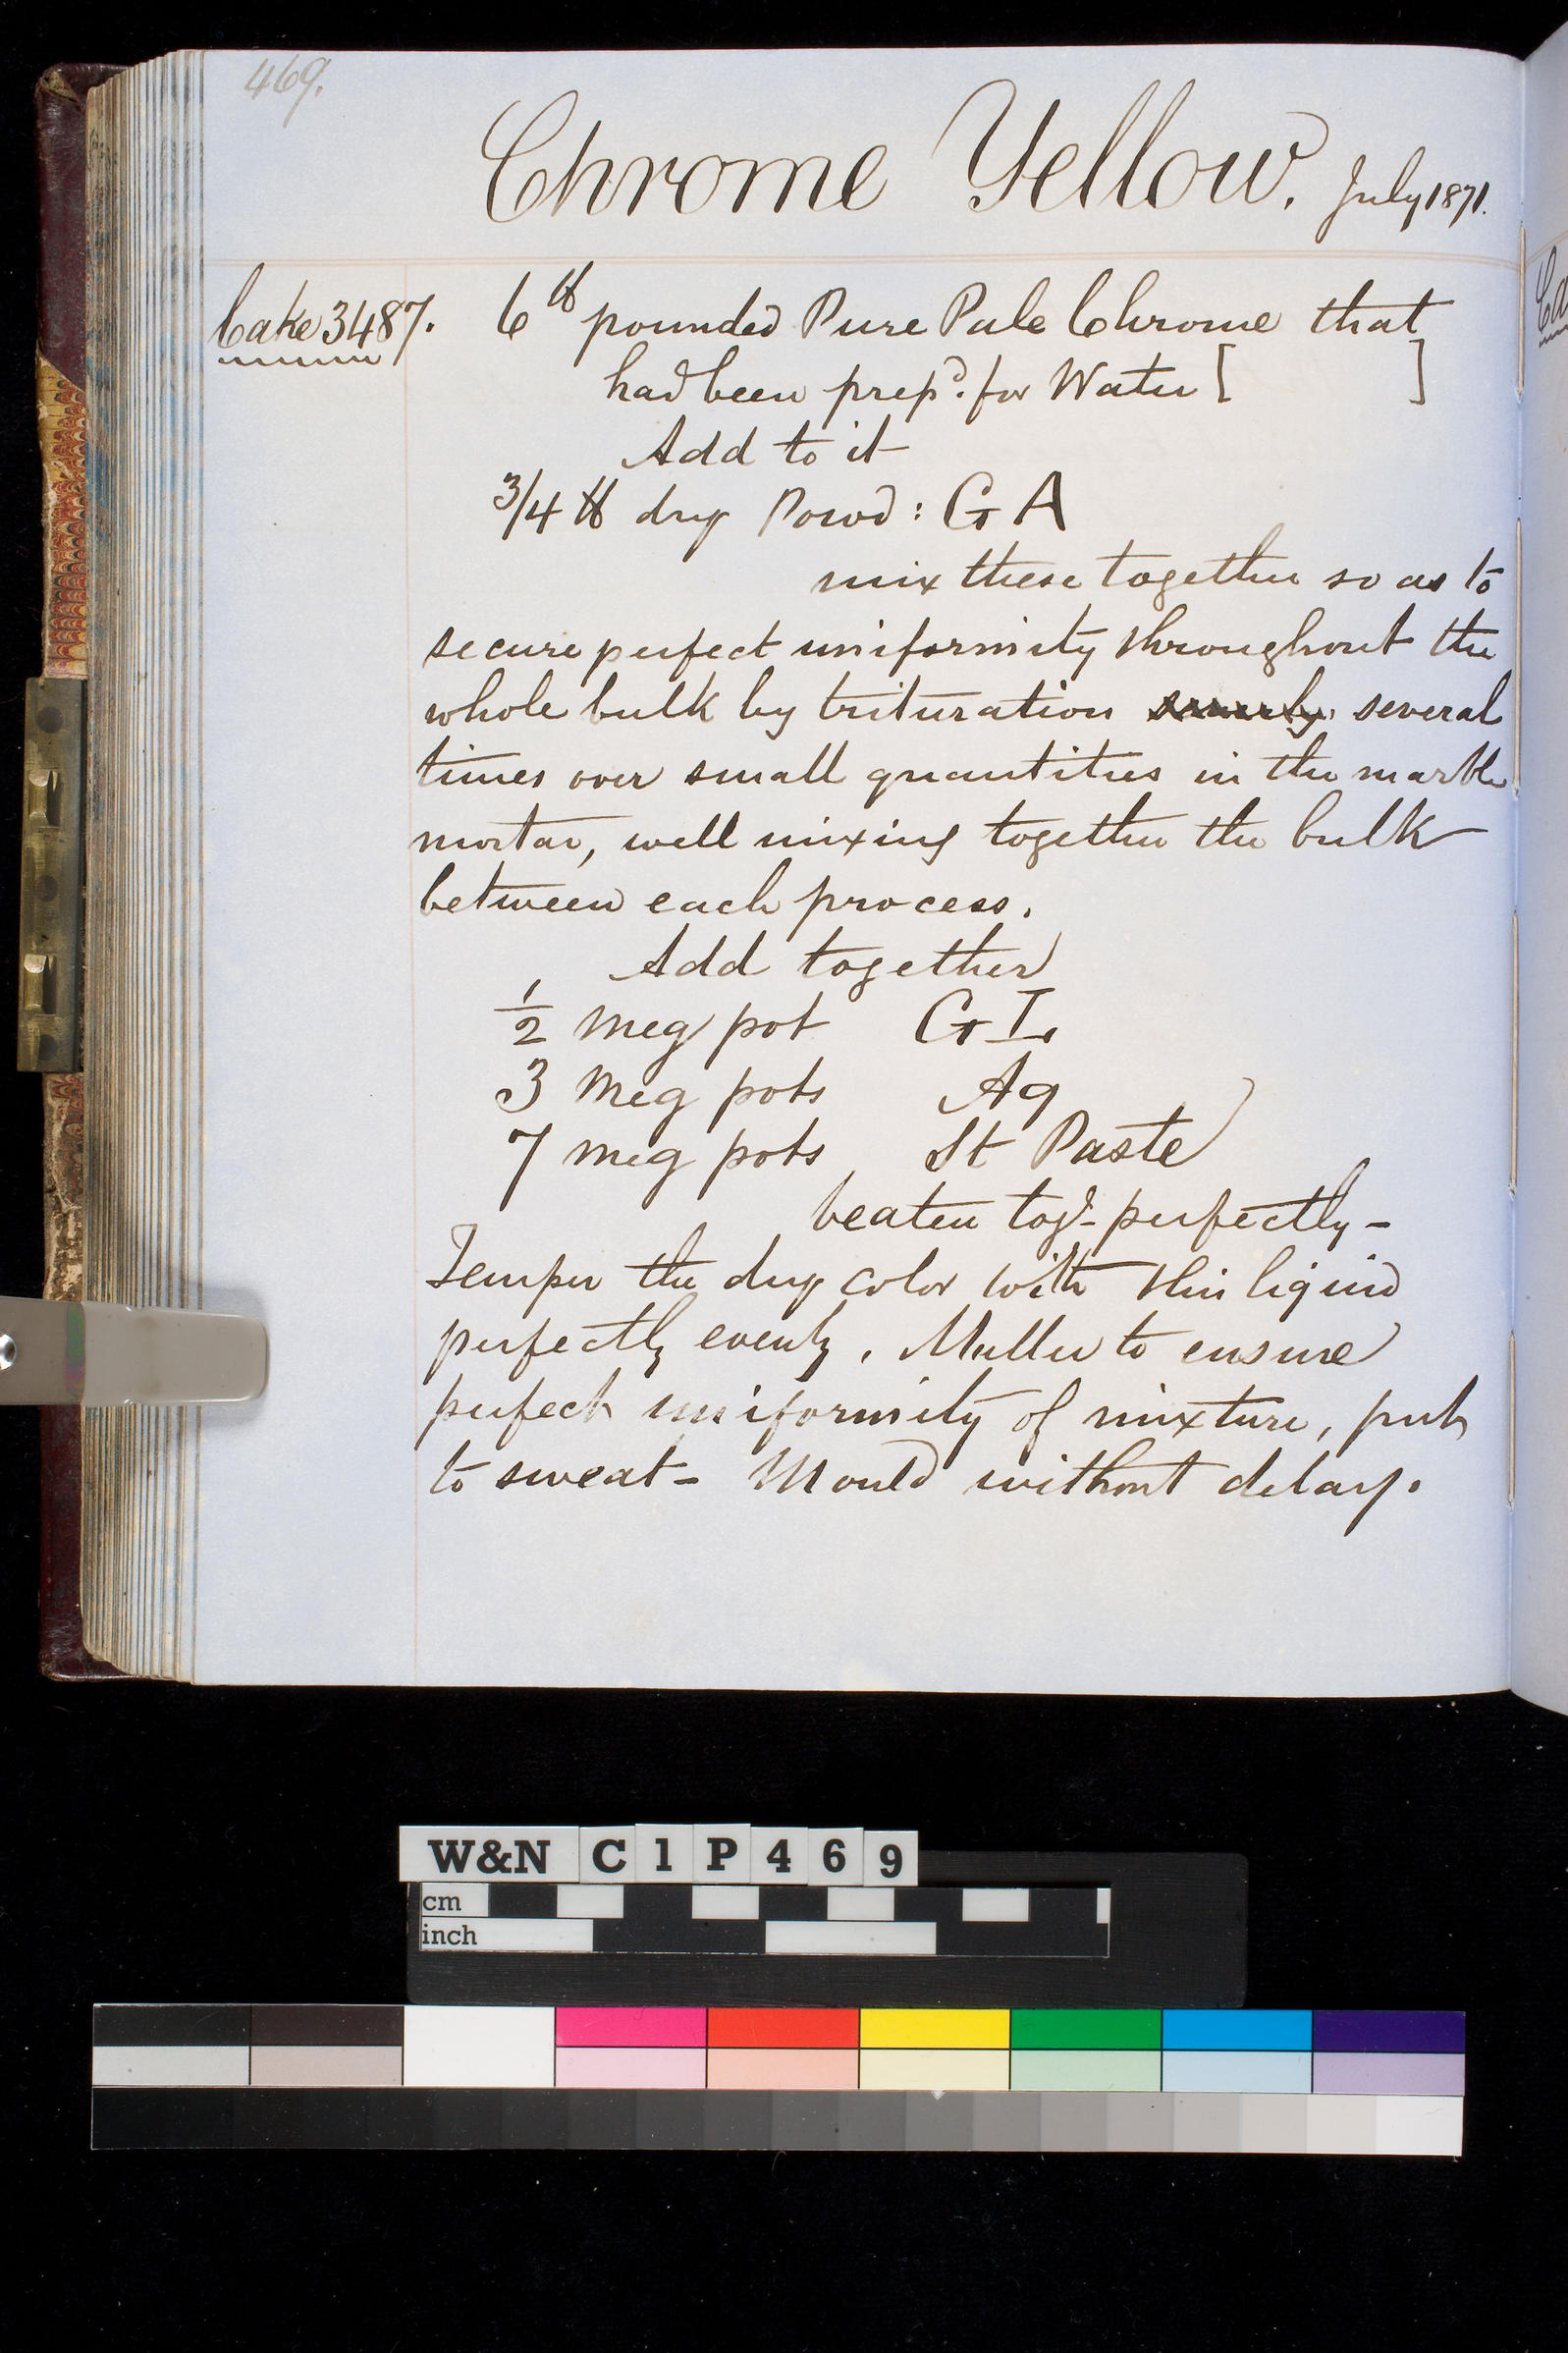 469.
Chrome Yellow. July 1871.
Cake 3487. 6 lb pounded Pure Pale Chrome that
had been prepd. for Water [ ]
Add to it
3/4 lb dry Powd: G A
mix these together so as to
secure perfect uniformity throughout the
whole bulk by trituration several
times over small quantities in the marble
mortar, well mixing together the bulk
between each process.
Add together
1/2 meg pot G I.
3 meg pots Aq
7 meg pots St Paste
beaten togr- perfectly -
Temper the dry color with this liquid
perfectly evenly, Muller to ensure
perfect uniformity of mixture, put
to sweat - Mould without delay.
W&N C1P469
cm
inch